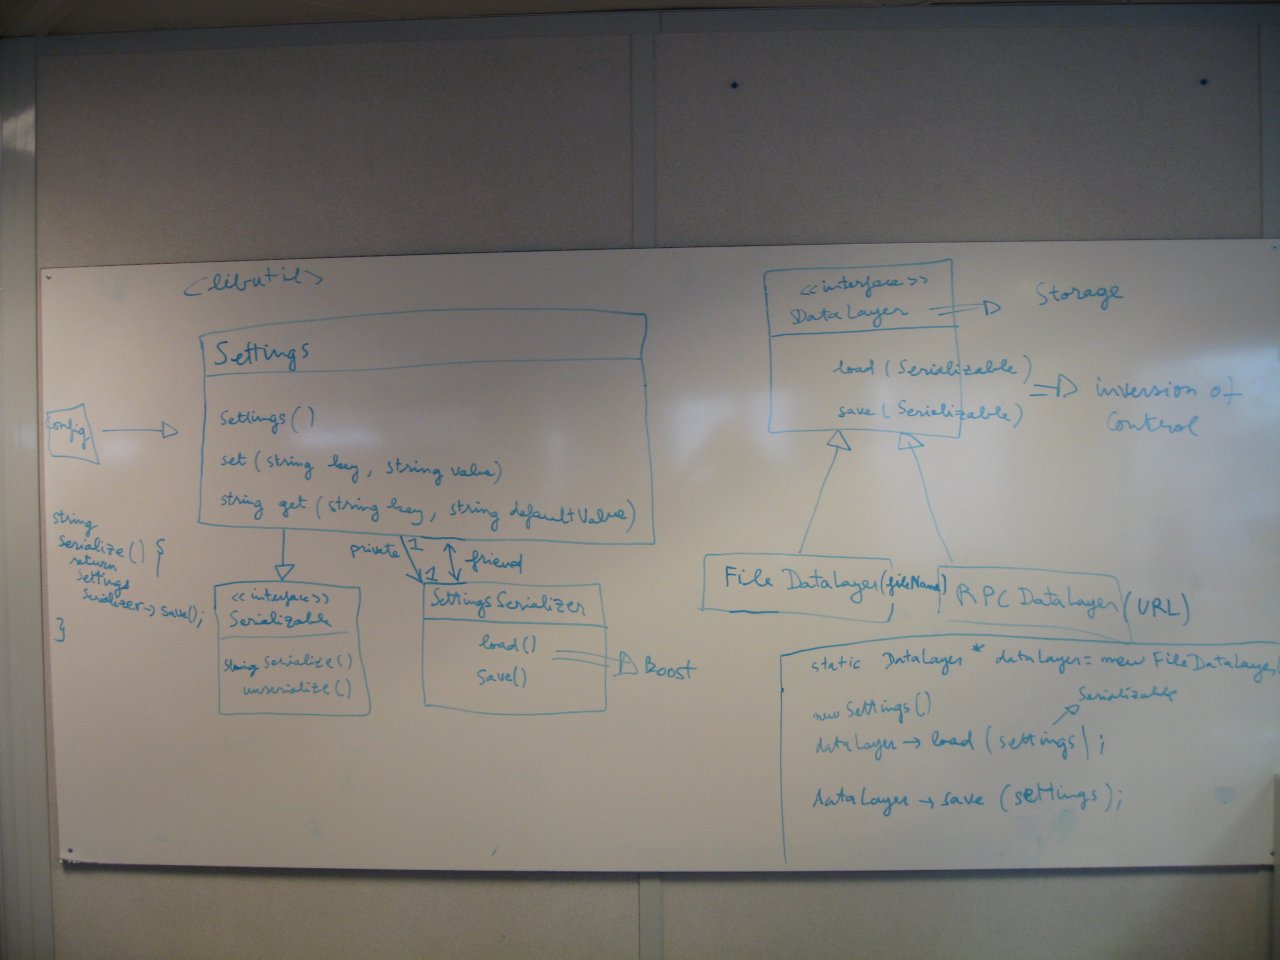 <libutil>
Settings
Settings()
set (string key, string value)
string get (string key, string defaultValue)
Config
string
Serialize() {
return
Settings
Serializer→save();
}
<<interface>>
Serializable
string serialize()
unserialize()
private
1
1
friend
SettingsSerializer
load()
save()
Boost
<<interface>>
DataLayer
Storage
load (Serializable)
save (Serializable)
inversion of
Control
File DataLayer(fileName)
RPC DataLayer (URL)
static DataLayer * dataLayer = new FileDataLayer(
new Settings()
Serializable
dataLayer → load (settings);
dataLayer → save (settings);